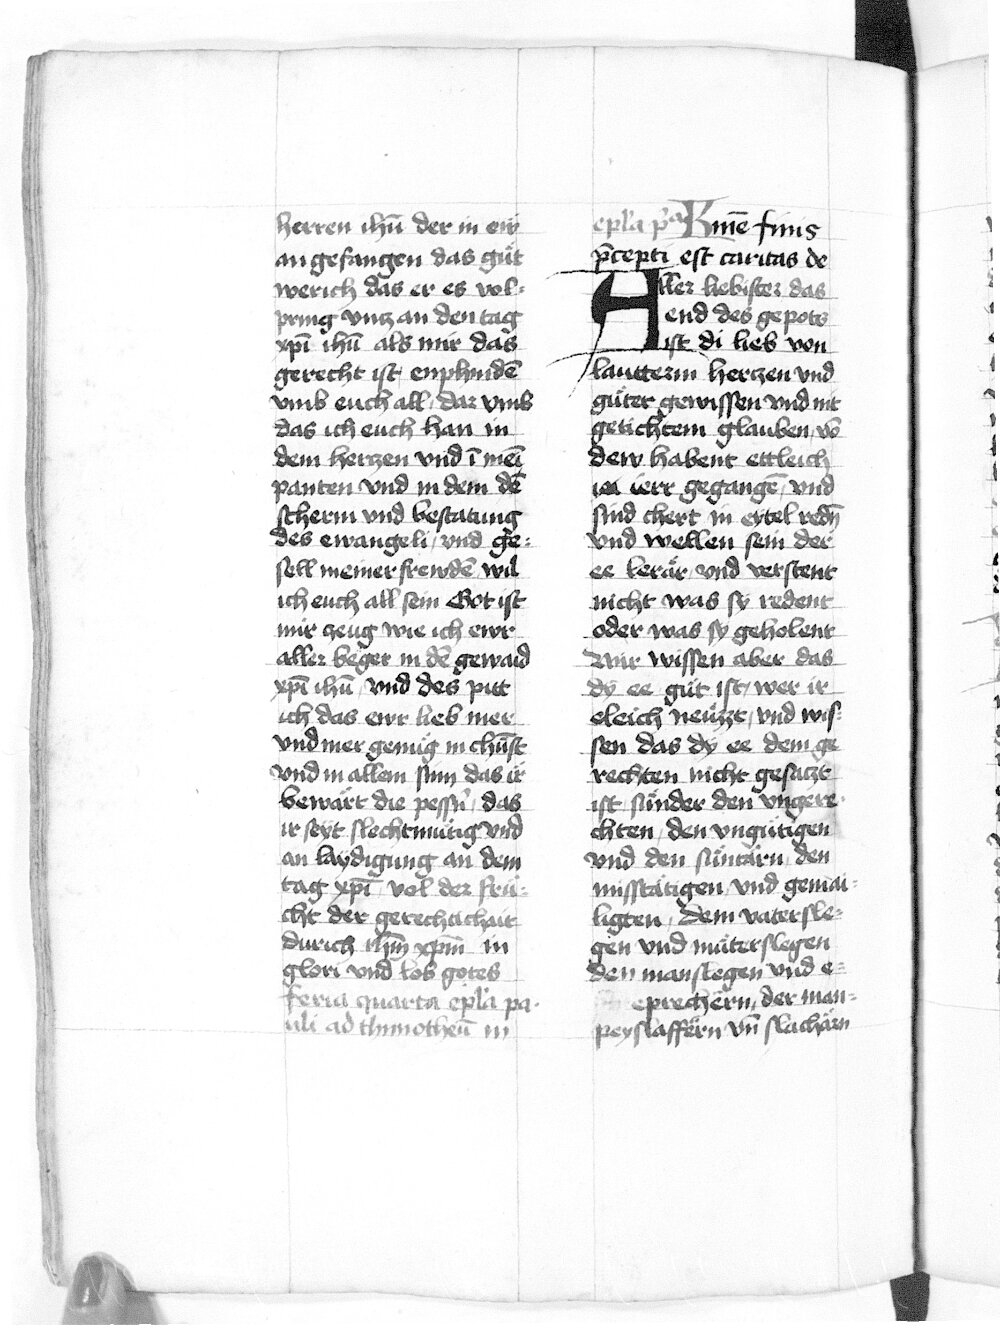 herren ihū der in ew
angefangen das gůt
werich das er es vol-
pring vncz an den tag
xpī ihū als mir das
gerecht ist enphindē
vmb euch all dar vmb
das ich euch han in
dem herczen vnd ī meī
panten vnd in dem dē
scherm vnd bestatung
des ewangeli vnd ge-
sell meiner frewdē wil
ich euch all sein Got ist
mir zeug wie ich ewr
aller beger in dē gewaid
xpī ihū vnd des pitt
ich das ewr lieb mer
vnd mer genüg in chūst
vnd in allem sinn das ir
bewärt die pessn̄ das
ir seyt slechtmütig vnd
an laydigung an dem
tag xpī vol der frü-
cht der gerechtichait
durich ihm̄ xpm̄ in
glori vnd lob gotes
feria quarta epl̄a pa-
uli ad thimotheū in
epl̄a pᵃ Kmē finis
p̄cepti est caritas de
Aller liebister das
end des gepots
ist di lieb von
lautterm herczen vnd
gůter gewissen vnd nit
getichtem glauben vō
dew habent ettleich
ierr gegangē vnd
sind chert in eytel redn̄
vnd wellen sein der
ee lerär vnd verstent
nicht was sy redent
oder was sy geholent
Wir wissen aber das
dy ee gůt ist wer ir
eleich neüzzt vnd wis-
sen das dy ee dem ge
rechten nicht gesaczt
ist sünder den vngere-
chten den vngütigen
vnd den süntärn den
misstätigen vnd gemai-
ligten dem vatersle-
gen vnd müterslegen
den manslegen vnd e-
eprechern der man-
peyslaffërn vn̄ slachärn